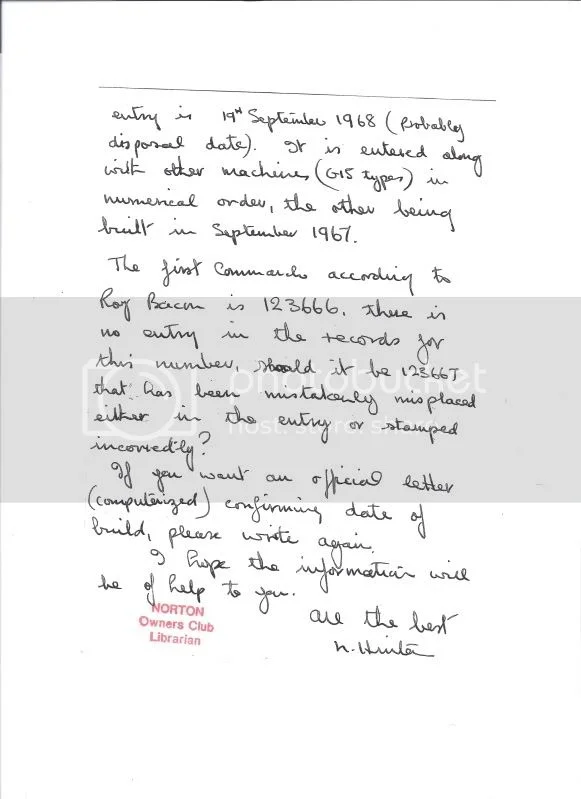 entry is 19th September 1968 (probably
disposal date). It is entered along
with other machines (G15 types) in
numerical order, the other being
built in September 1967.
The first Commando according to
Roy Bacon is 123666, there is
no entry in the records for
this number, should it be 123667
that has been mistakenly misplaced
either in the entry or stamped
incorrectly?
If you want an official letter
(computerized) confirming date of
build, please wrote again.
I hope the information will
be of help to you.
all the best
NORTON
Owners Club
Librarian
photobucket